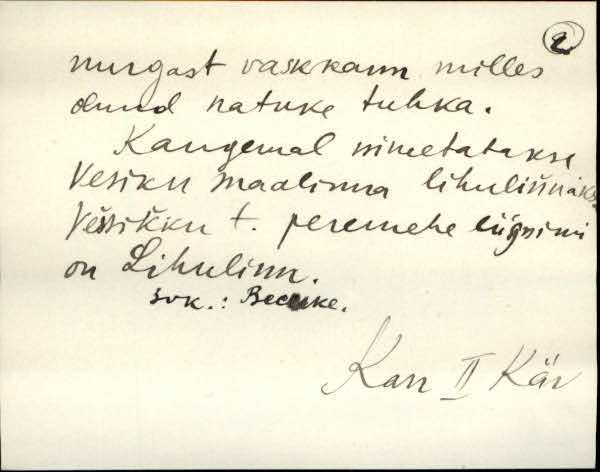 2
nurgast vaskkann milles
olnud natuke tuhka.
Kaugemal nimetatakse
Vesiku maalinna lihulinnaks
Vessikku t. peremehe liignimi
on Lihulinn.
svk.:
Karr II Kär